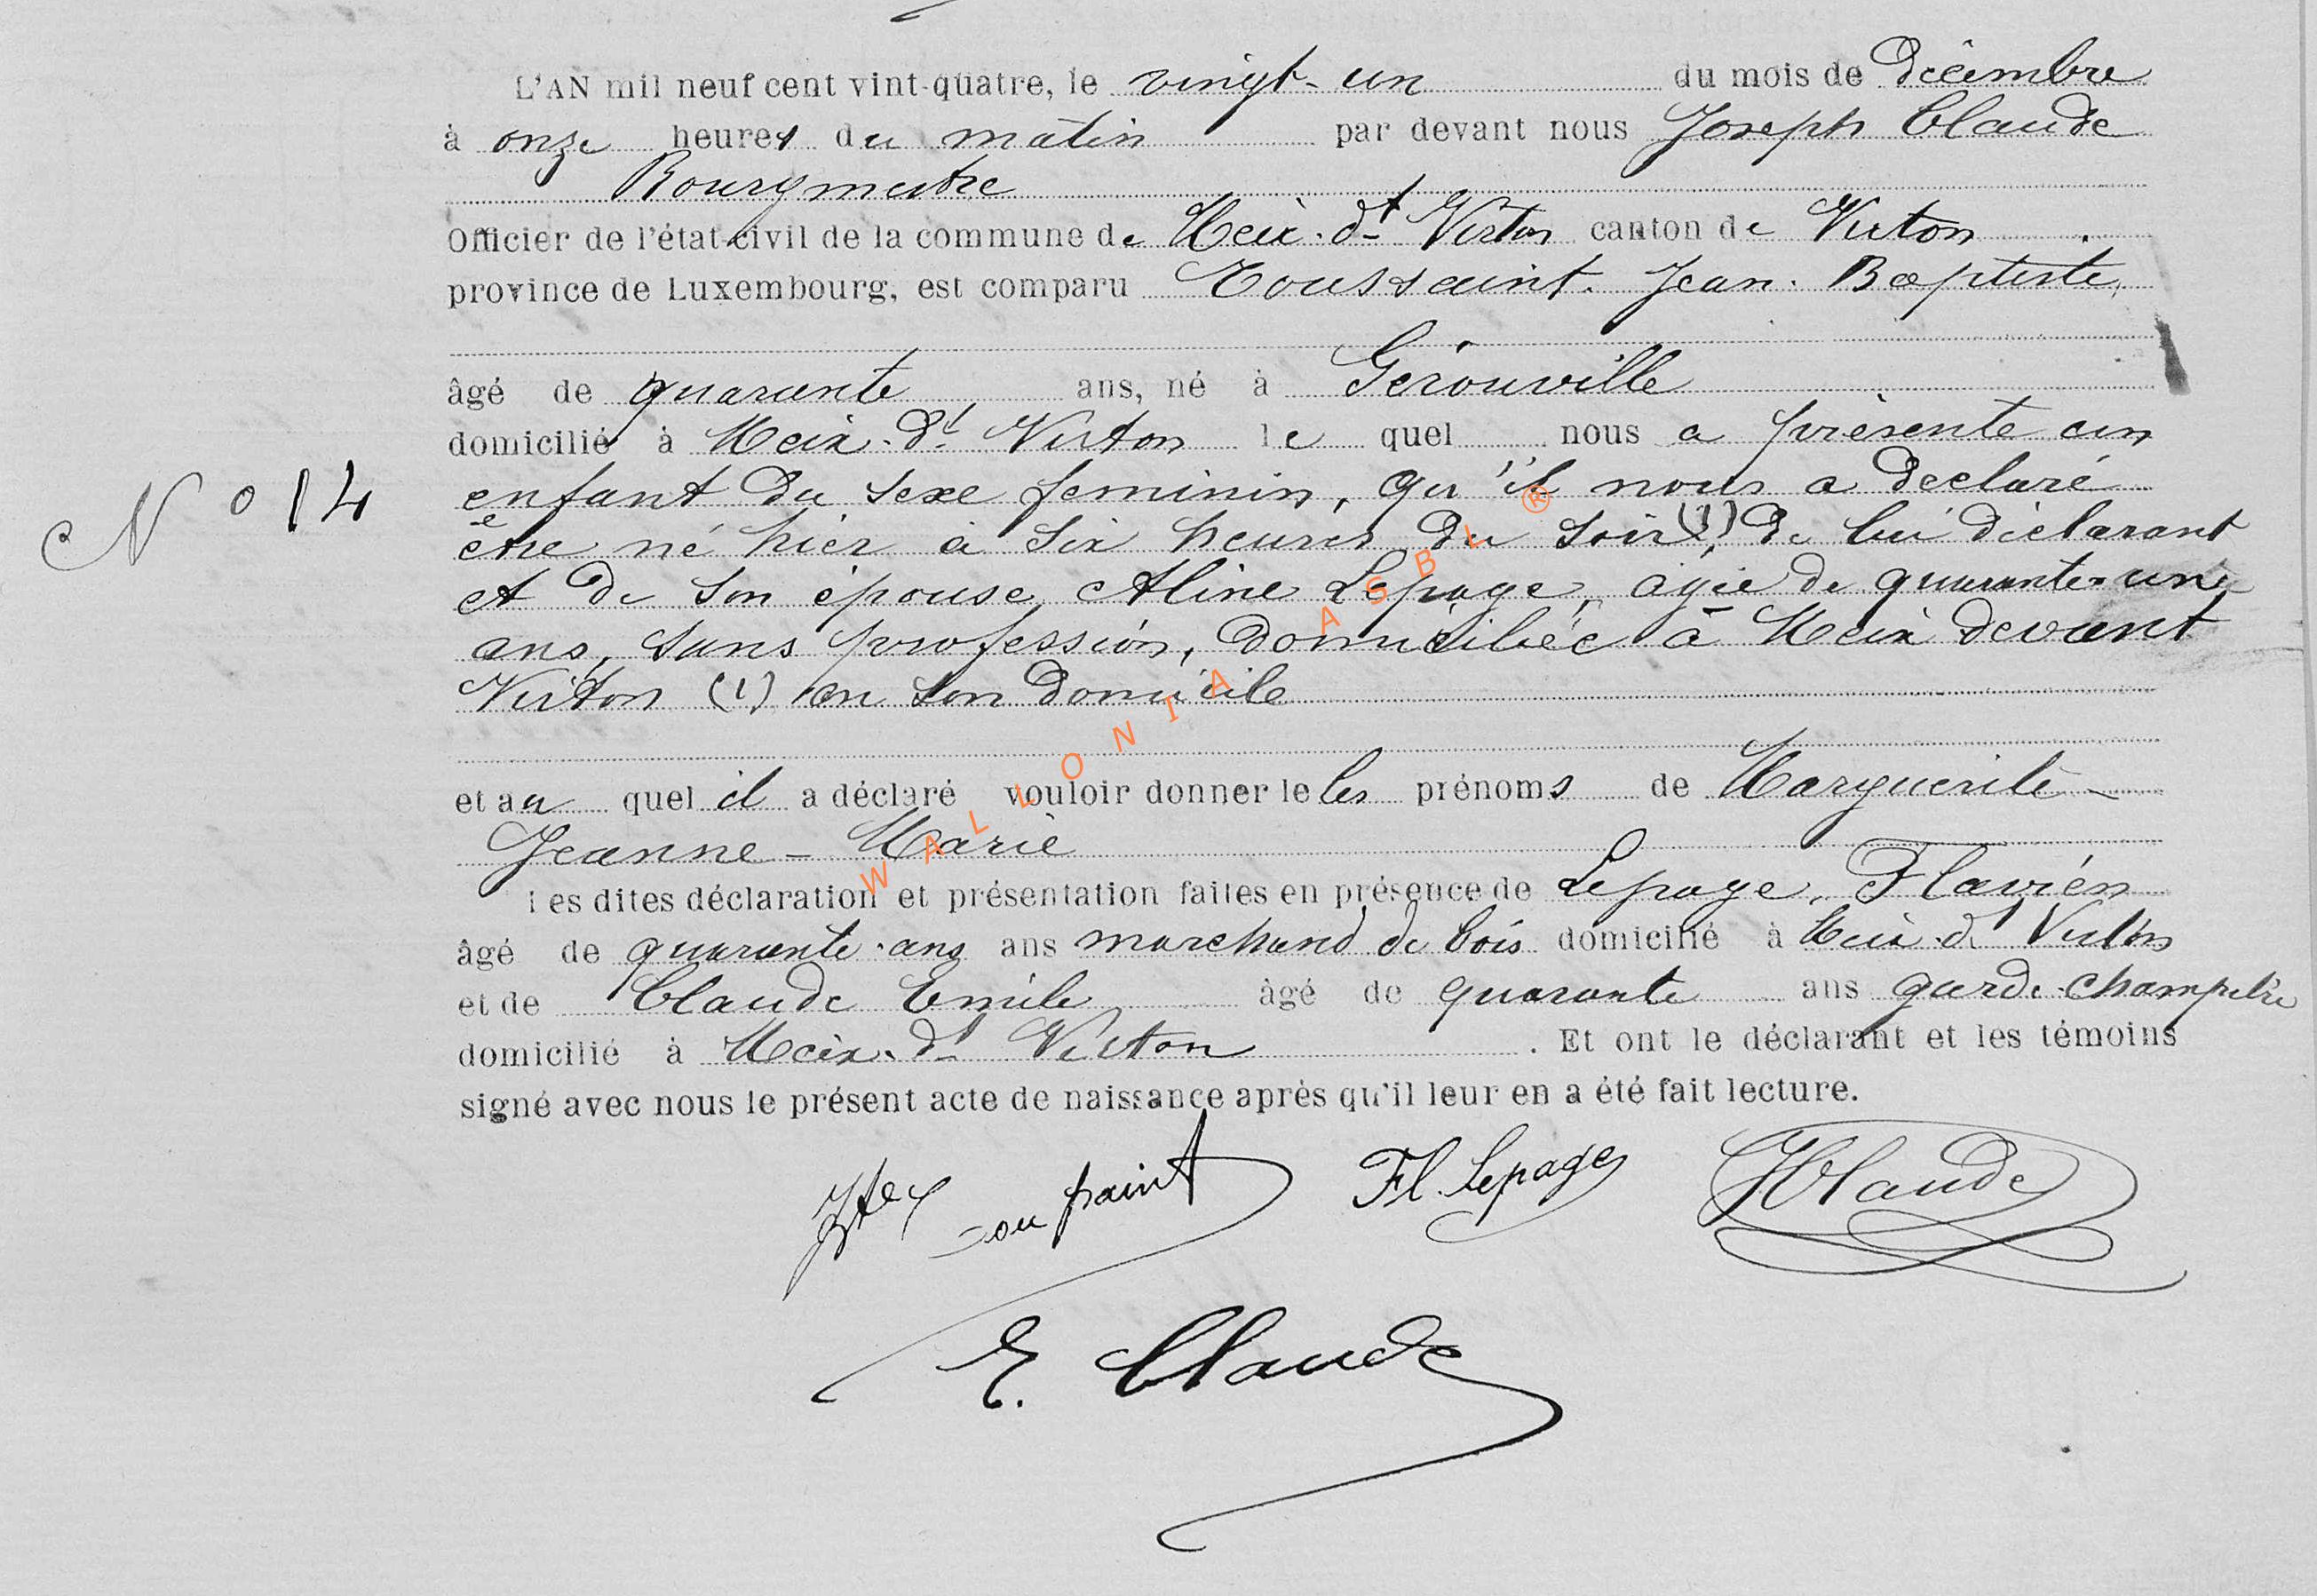 L'AN mil neuf cent vint-quatre, le vingt-un du mois de décembre
à onze heures du matin par devant nous Joseph Claude
Bourgmestre
Officier de l'état-civil de la commune de Meix-dt Virton canton de Virton
province de Luxembourg, est comparu Toussaint. Jean. Baptiste,
âgé de quarante ans, né à Gérouville
domicilié à Meix-dt Virton le quel nous a présenté un
enfant du sexe feminin, qu'il nous a declaré
N° 14
être né hier à six heures du soir (1), de lui déclarant
et de son épouse, Aline Lepage, agée de quarante-un
ans, sans profession, domiciliée à Meix devant
Virton (1) en son domicile
et au quel il a déclaré vouloir donner le les prénoms de Marguerite -
Jeanne - Marie
les dites déclaration et présentation faites en présence de Lepage, Flavien
âgé de quarante ans ans marchand de bois domicilié à Meix-dt Virton
et de Claude Emile âgé de quarante ans garde-champêtre
domicilié à Meix-dt Virton . Et ont le déclarant et les témoins
signé avec nous le présent acte de naissance après qu'il leur en a été fait lecture.
Toussaint Fl. Lepage J Claude
E. Claude
WALLONIA ASBL ®